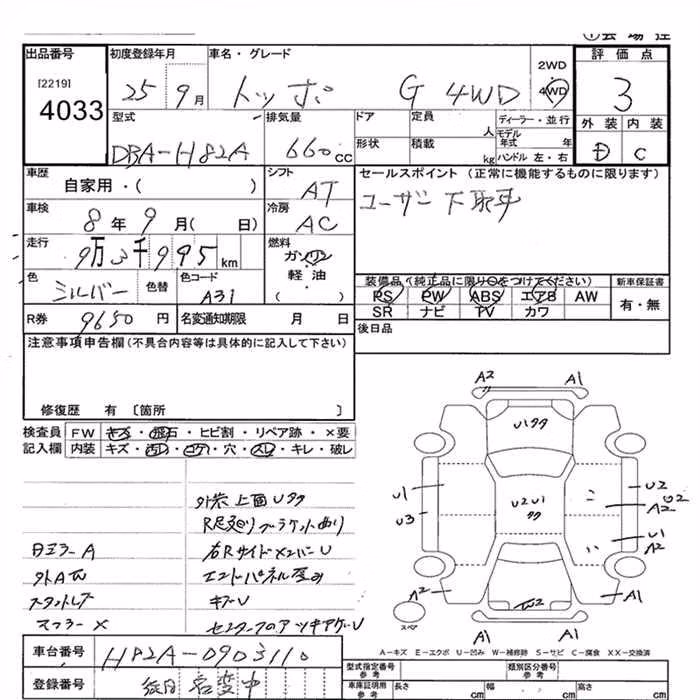 出品番号
[2219]
4033
初度登録年月
25 9月
車名・グレード
トッポ G 4WD
2WD
4WD
評価点
3
外装 内装
D C
型式
DBA-H82A
排気量
660cc
ドア
形状
定員
人
積載
kg
ディーラー・並行
モデル
年式 年
ハンドル 左・右
車歴
自家用・( )
シフト
AT
セールスポイント (正常に機能するものに限ります)
ユーザー下取車
車検
8年9月( 日)
冷房
AC
走行
9万3千995km
燃料
ガソリン
軽・油
( )
色
シルバー
色替
色コード
A31
装備品(純正品に限り○をつけてください)
PS PW ABS エアB AW
SR ナビ TV カワ
新車保証書
有・無
R券 9650円
名変通知期限 月 日
後日品
注意事項申告欄(不具合内容等は具体的に記入して下さい)
修復歴 有 〔箇所 〕
検査員
記入欄
FW キズ・飛石・ヒビ割・リペア跡・×要
内装 キズ・汚レ・コゲ・穴・スレ・キレ・破レ
外装上面Uタタ
右RサイドメンバーU
キズU
A2 A1
Uタタ
U2U1
タタ
U1
U3
U2
U2
A2
U1
A2
A2
A1
A1 A1
スペア
A-キズ E-エクボ U-凹み W-補修跡 S-サビ C-腐食 XX-交換済
車台番号 H82A-0903110
登録番号
型式指定番号
参考
類別区分番号
参考
車庫証明用
参考
長さ cm 幅 cm 高さ cm